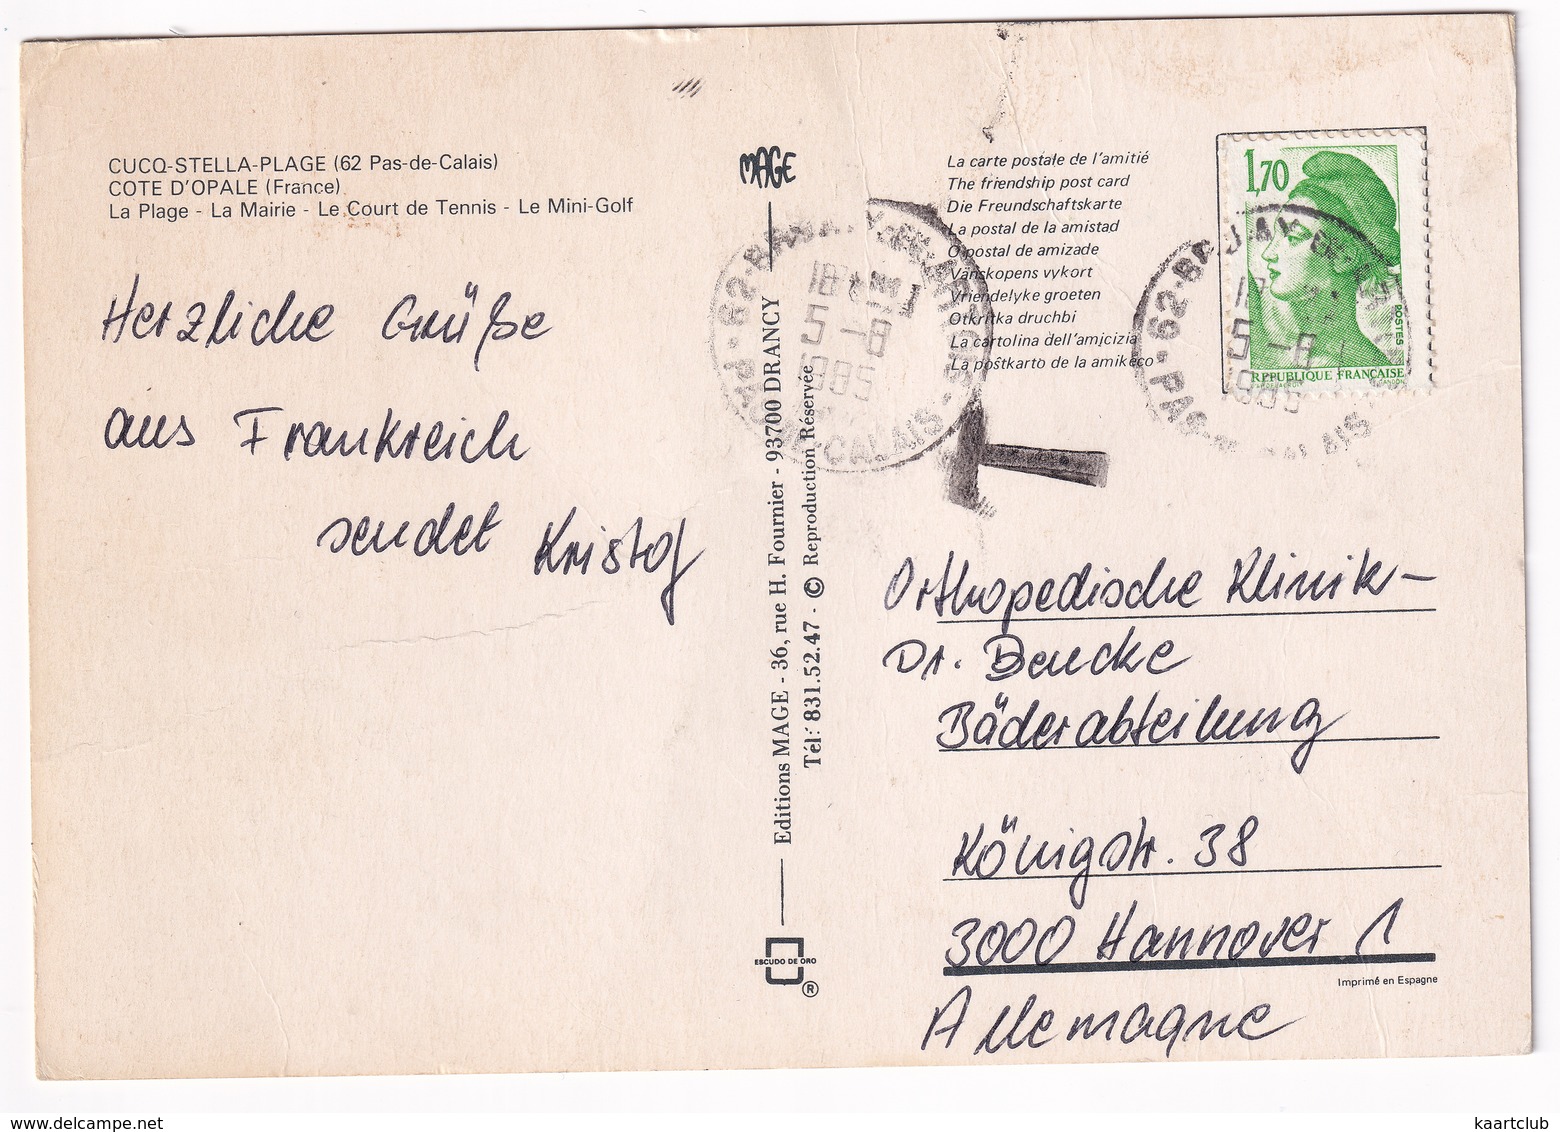 CUCQ-STELLA-PLAGE (62 Pas-de-Calais)
COTE D'OPALE (France)
La Plage - La Mairie - Le Court de Tennis - Le Mini-Golf
Herzliche Grüße
aus Frankreich
sendet Kristof
MAGE
Editions MAGE - 36, rue H. Fournier - 93700 DRANCY
Tél: 831.52.47 - © Reproduction Réservée
ESCUDO DE ORO
®
La carte postale de l'amitié
The friendship post card
Die Freundschaftskarte
La postal de la amistad
O postal de amizade
Vänskopens vykort
Vriendelyke groeten
Otkritka druchbi
La cartolina dell'amicizia
La poŝtkarto de la amikeco
1,70
POSTES
REPUBLIQUE FRANÇAISE
GANDON
18
5-8
1985
62
PAS-DE-CALAIS
18
5-8
1985
62
Orthopedische Klinik-
Dr. Bencke
Bäderabteilung
Königstr. 38
3000 Hannover 1
Allemagne
Imprimé en Espagne
kaartclub